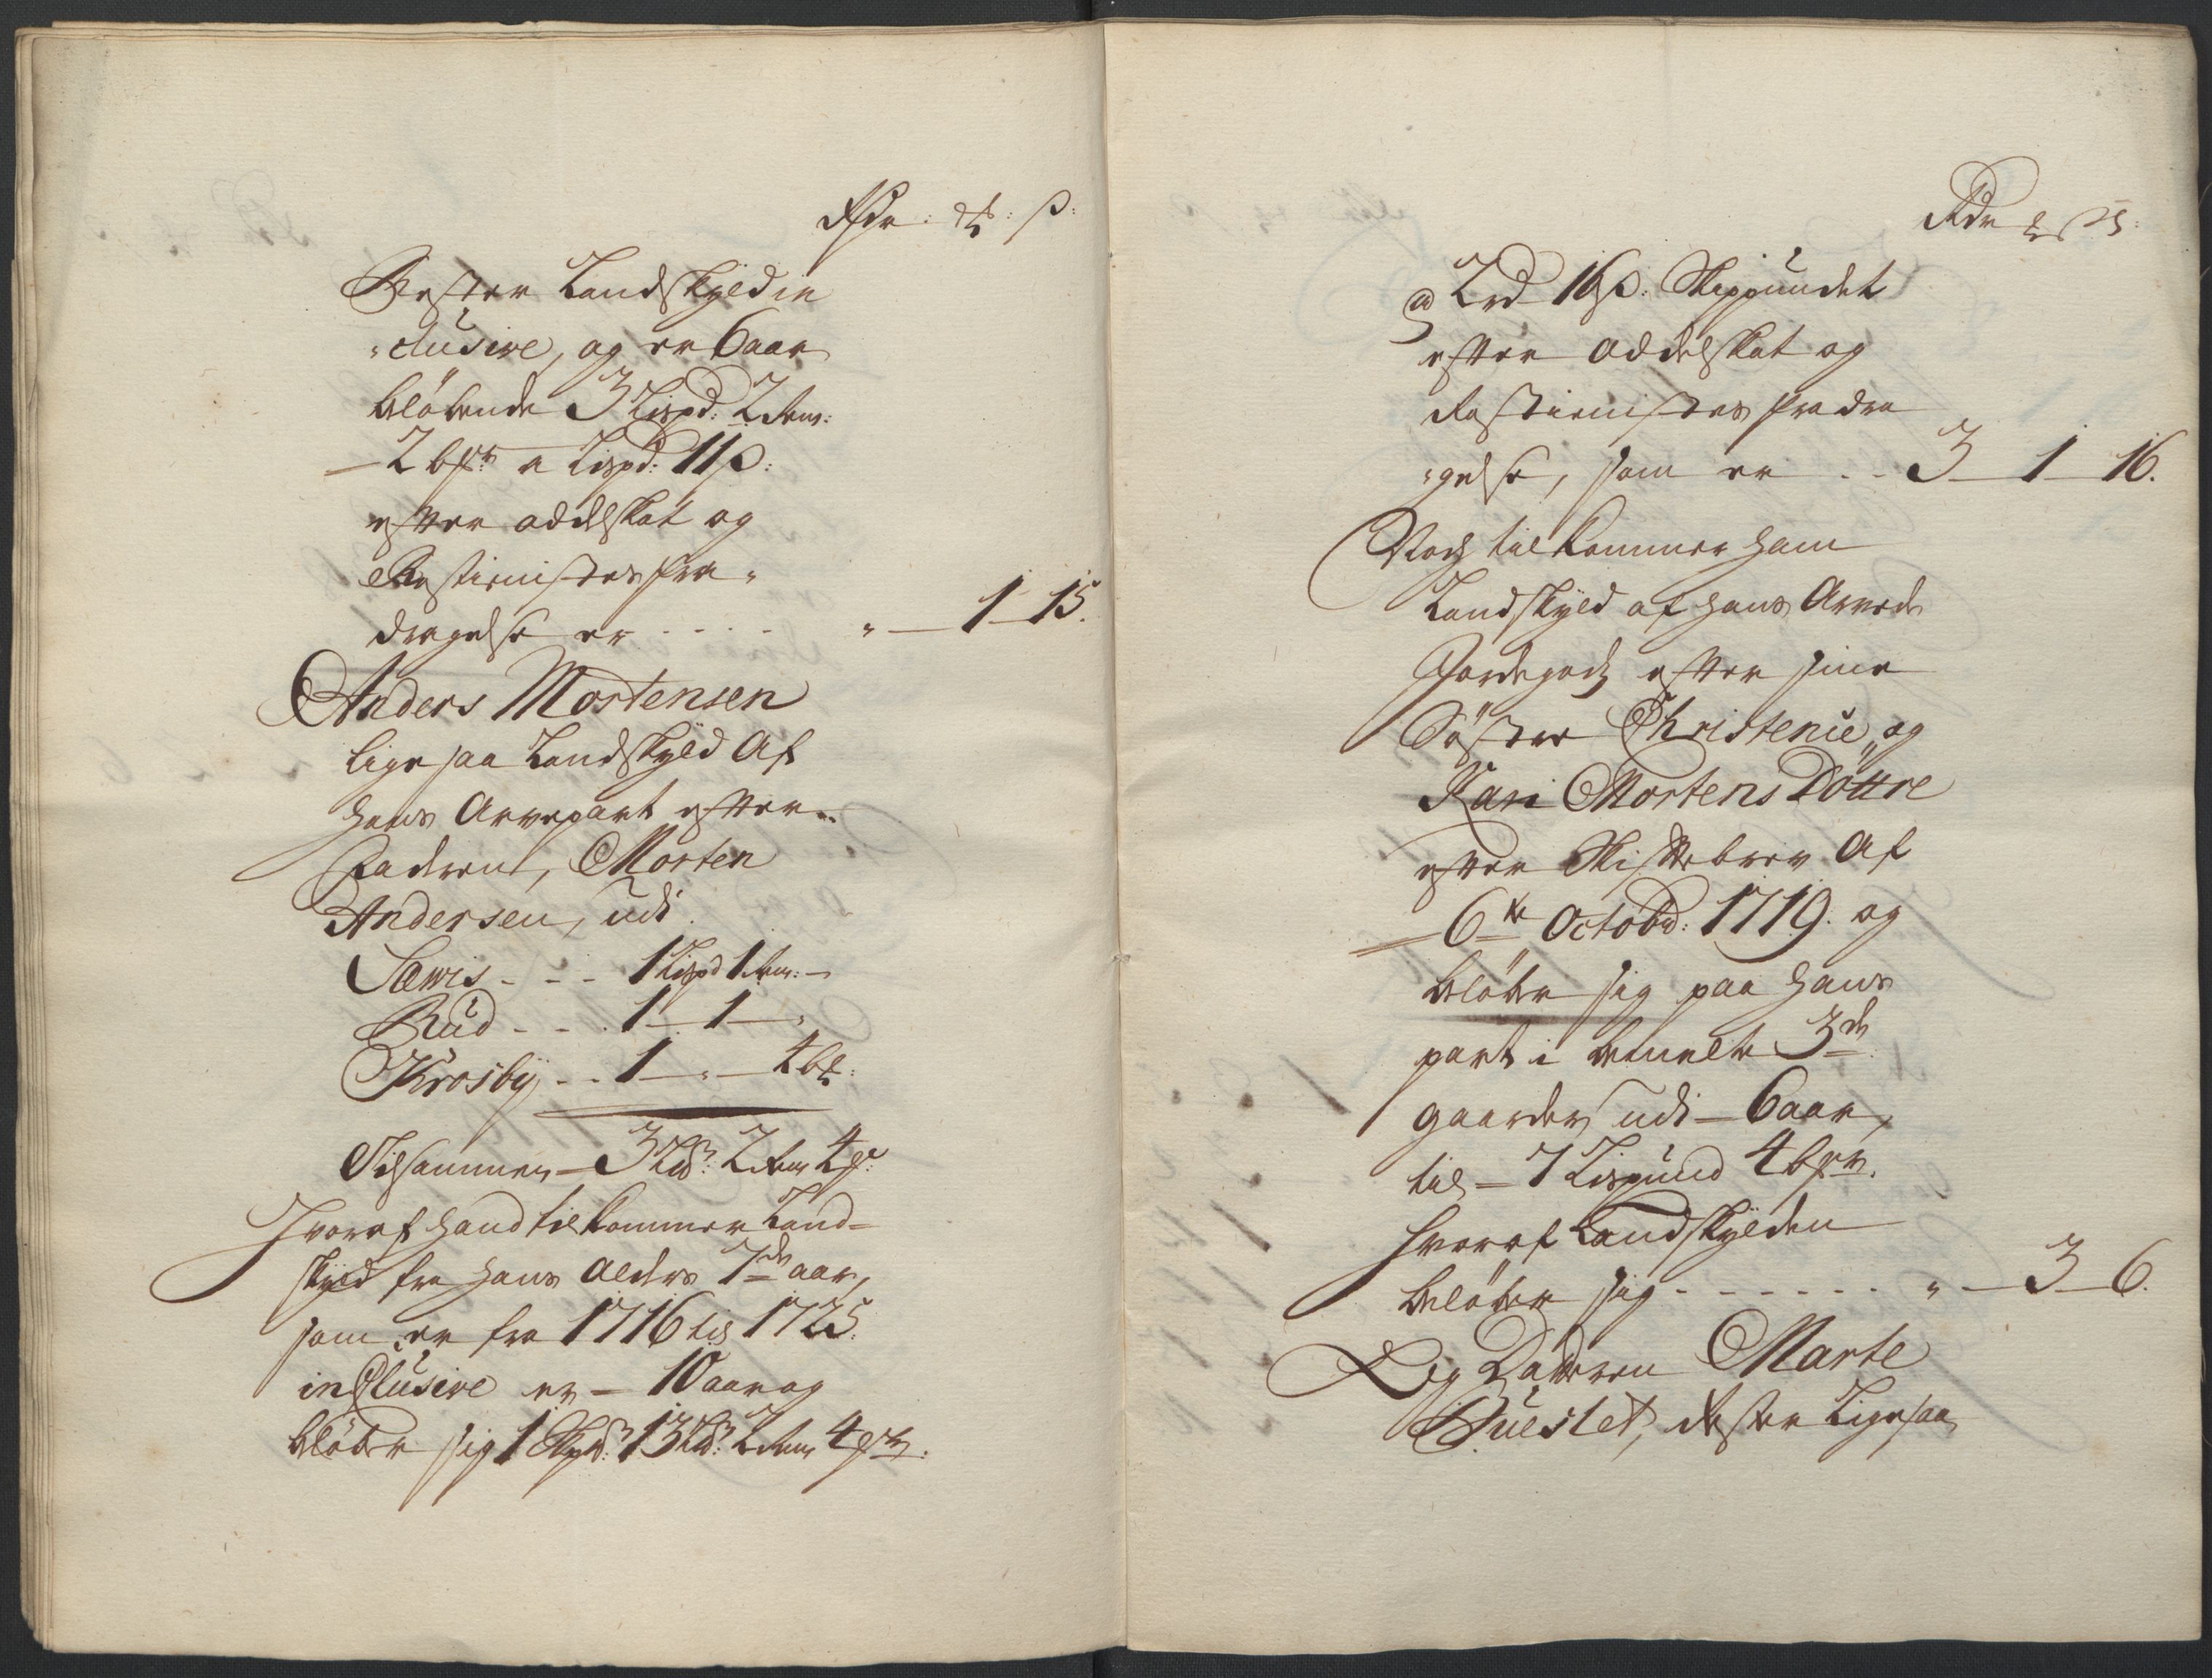 Rdr: ort: s:
Rester Landskyld in
-clusive, og er 6 aar
beløbende 3 Lispd: 2 rem:
2 bpr a Lispd: 11 s:
efter addelskat og
Rostienistes fra-
dragelse er - - - - „ — 1 — 15.
Anders Mortensen
ligesaa Landskyld Af
hans Arvepart efter
Faderen, Morten
Andersen, udi
Sæwis - - - 1 Lispd 1 rem: —
Rud - - . 1 — 1 — „
Krosby - - 1 — „ — 4 bp:
Tilsammen — 3 Ld: 2 rem 4 p:
Hvoraf hand tilkommer Land-
skyld fra hans Alders 7de aar,
som er fra 1716 til 1725.
inclusive er — 10 aar og
beløber sig 1 Skpd: 13 Ld: 2 rem 4 pr.
Rdr ort s:
a 2 rd 16 s: Skippundet
efter addelskat og
Rostienistes fradra
-gelse, som er - - 3 — 1 — 16.
Noch tilkommer ham
Landskyld af hans Arvede
Jordegods efter sine
Søstre Christenie, og
Kari Mortens Døttre
efter Skiftebrev Af
6te Octobr: 1719. og
beløber sig paa hans
part i bemelte 3de
gaarder udi — 6 aar,
til — 7 Lispund 4 bpr.
hvoraf Landskylden
beløber sig - - - - - - „ — 3 — 6.
Lig Datteren Marte
rester Ligesaa